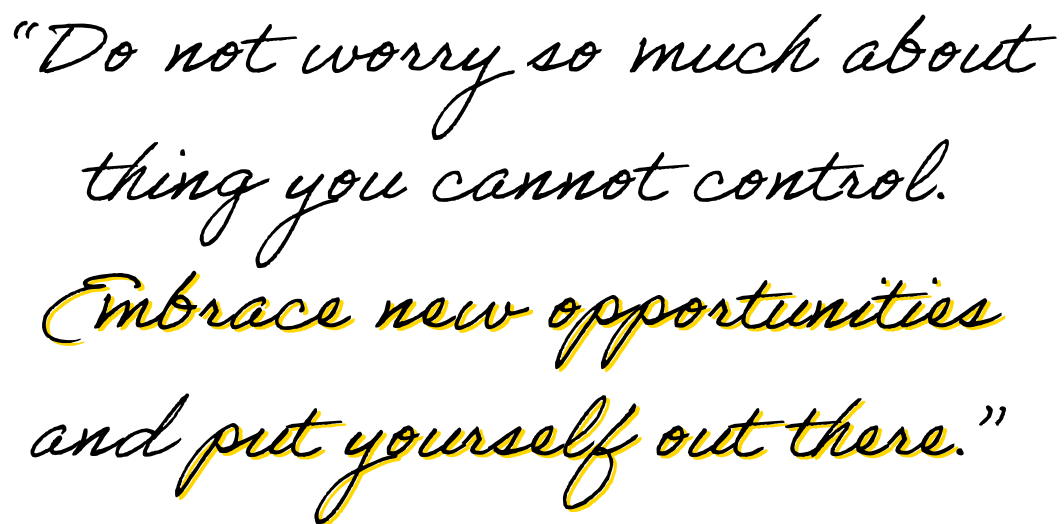 “Do not worry so much about
thing you cannot control.
Embrace new opportunities
and put yourself out there.”